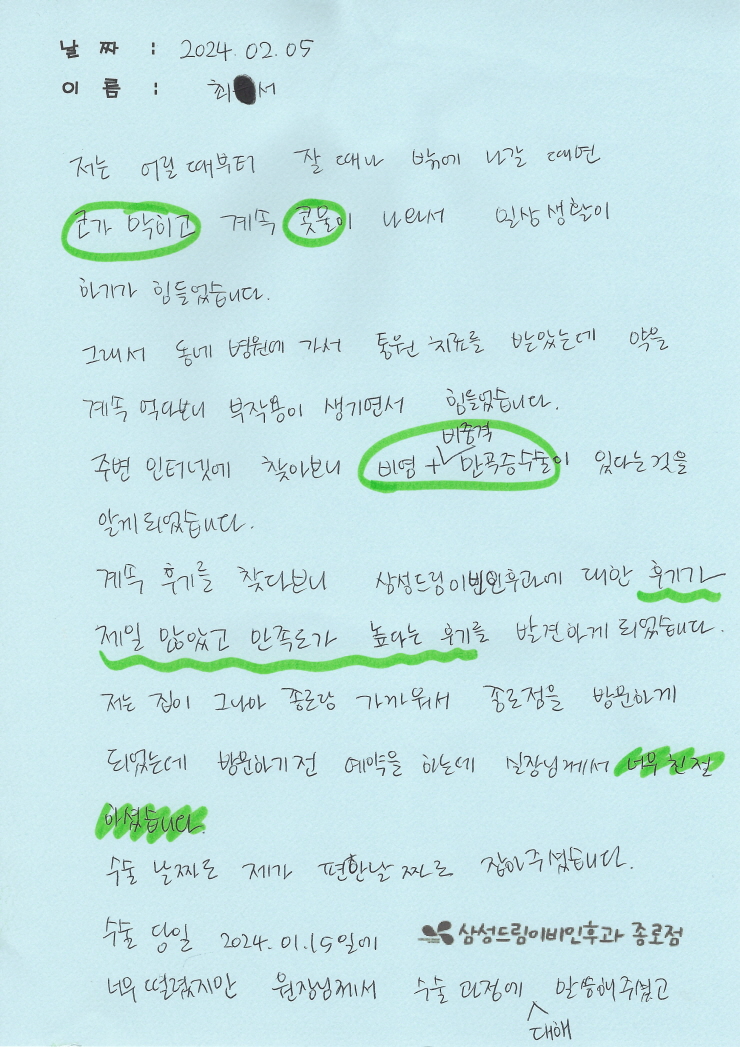 날 짜 : 2024. 02. 05
이 름 : 최 서
저는 어릴 때부터 잘 때나 밖에 나갈 때면
코가 막히고 계속 콧물이 나와서 일상생활이
하기가 힘들었습니다.
그래서 동네 병원에 가서 통원 치료를 받았는데 약을
계속 먹다보니 부작용이 생기면서 힘들었습니다.
비중격
주변 인터넷에 찾아보니 비염 + 만곡증수술이 있다는것을
알게되었습니다.
계속 후기를 찾다보니 삼성드림이비인후과에 대한 후기가
제일 많았고 만족도가 높다는 후기를 발견하게 되었습니다.
저는 집이 그나마 종로랑 가까워서 종로점을 방문하게
되었는데 방문하기전 예약을 하는데 실장님께서 너무 친절
하셨습니다.
수술 날짜도 제가 편한날 짜로 잡아주셨습니다.
수술 당일 2024. 01. 15일에
삼성드림이비인후과 종로점
너무 떨렸지만 원장님께서 수술 과정에 말씀해주셨고
대해